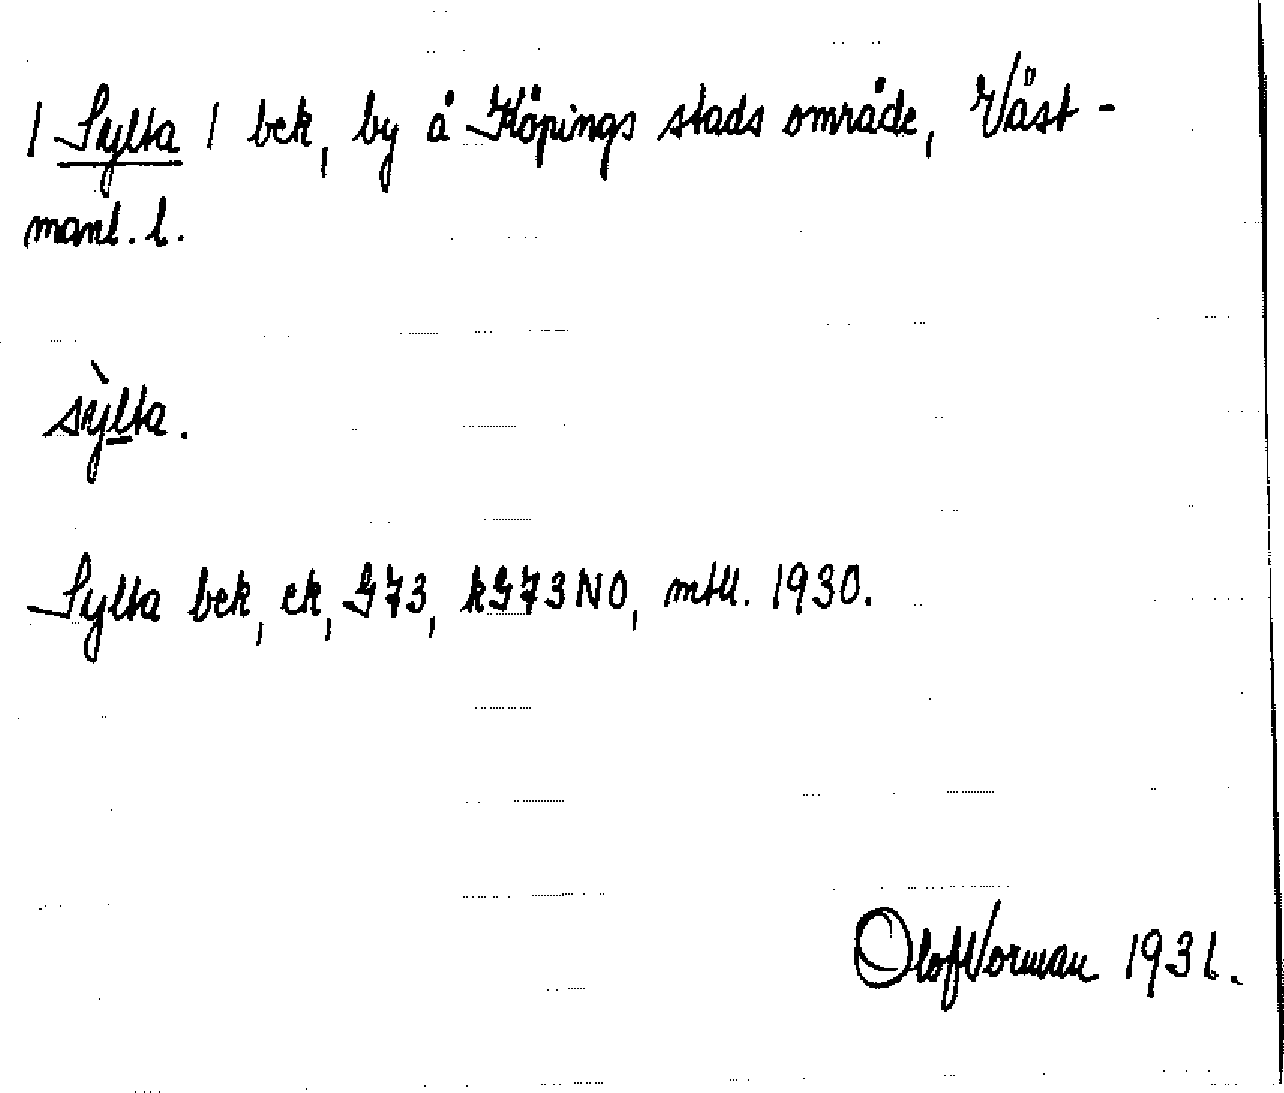 / Sylta / bek, by å Köpings stads område, Väst-
manl. l.
sỳlta.
Sylta bek, ek, G73, kG73NO, mtll. 1930.
Olof Vorman 1931.